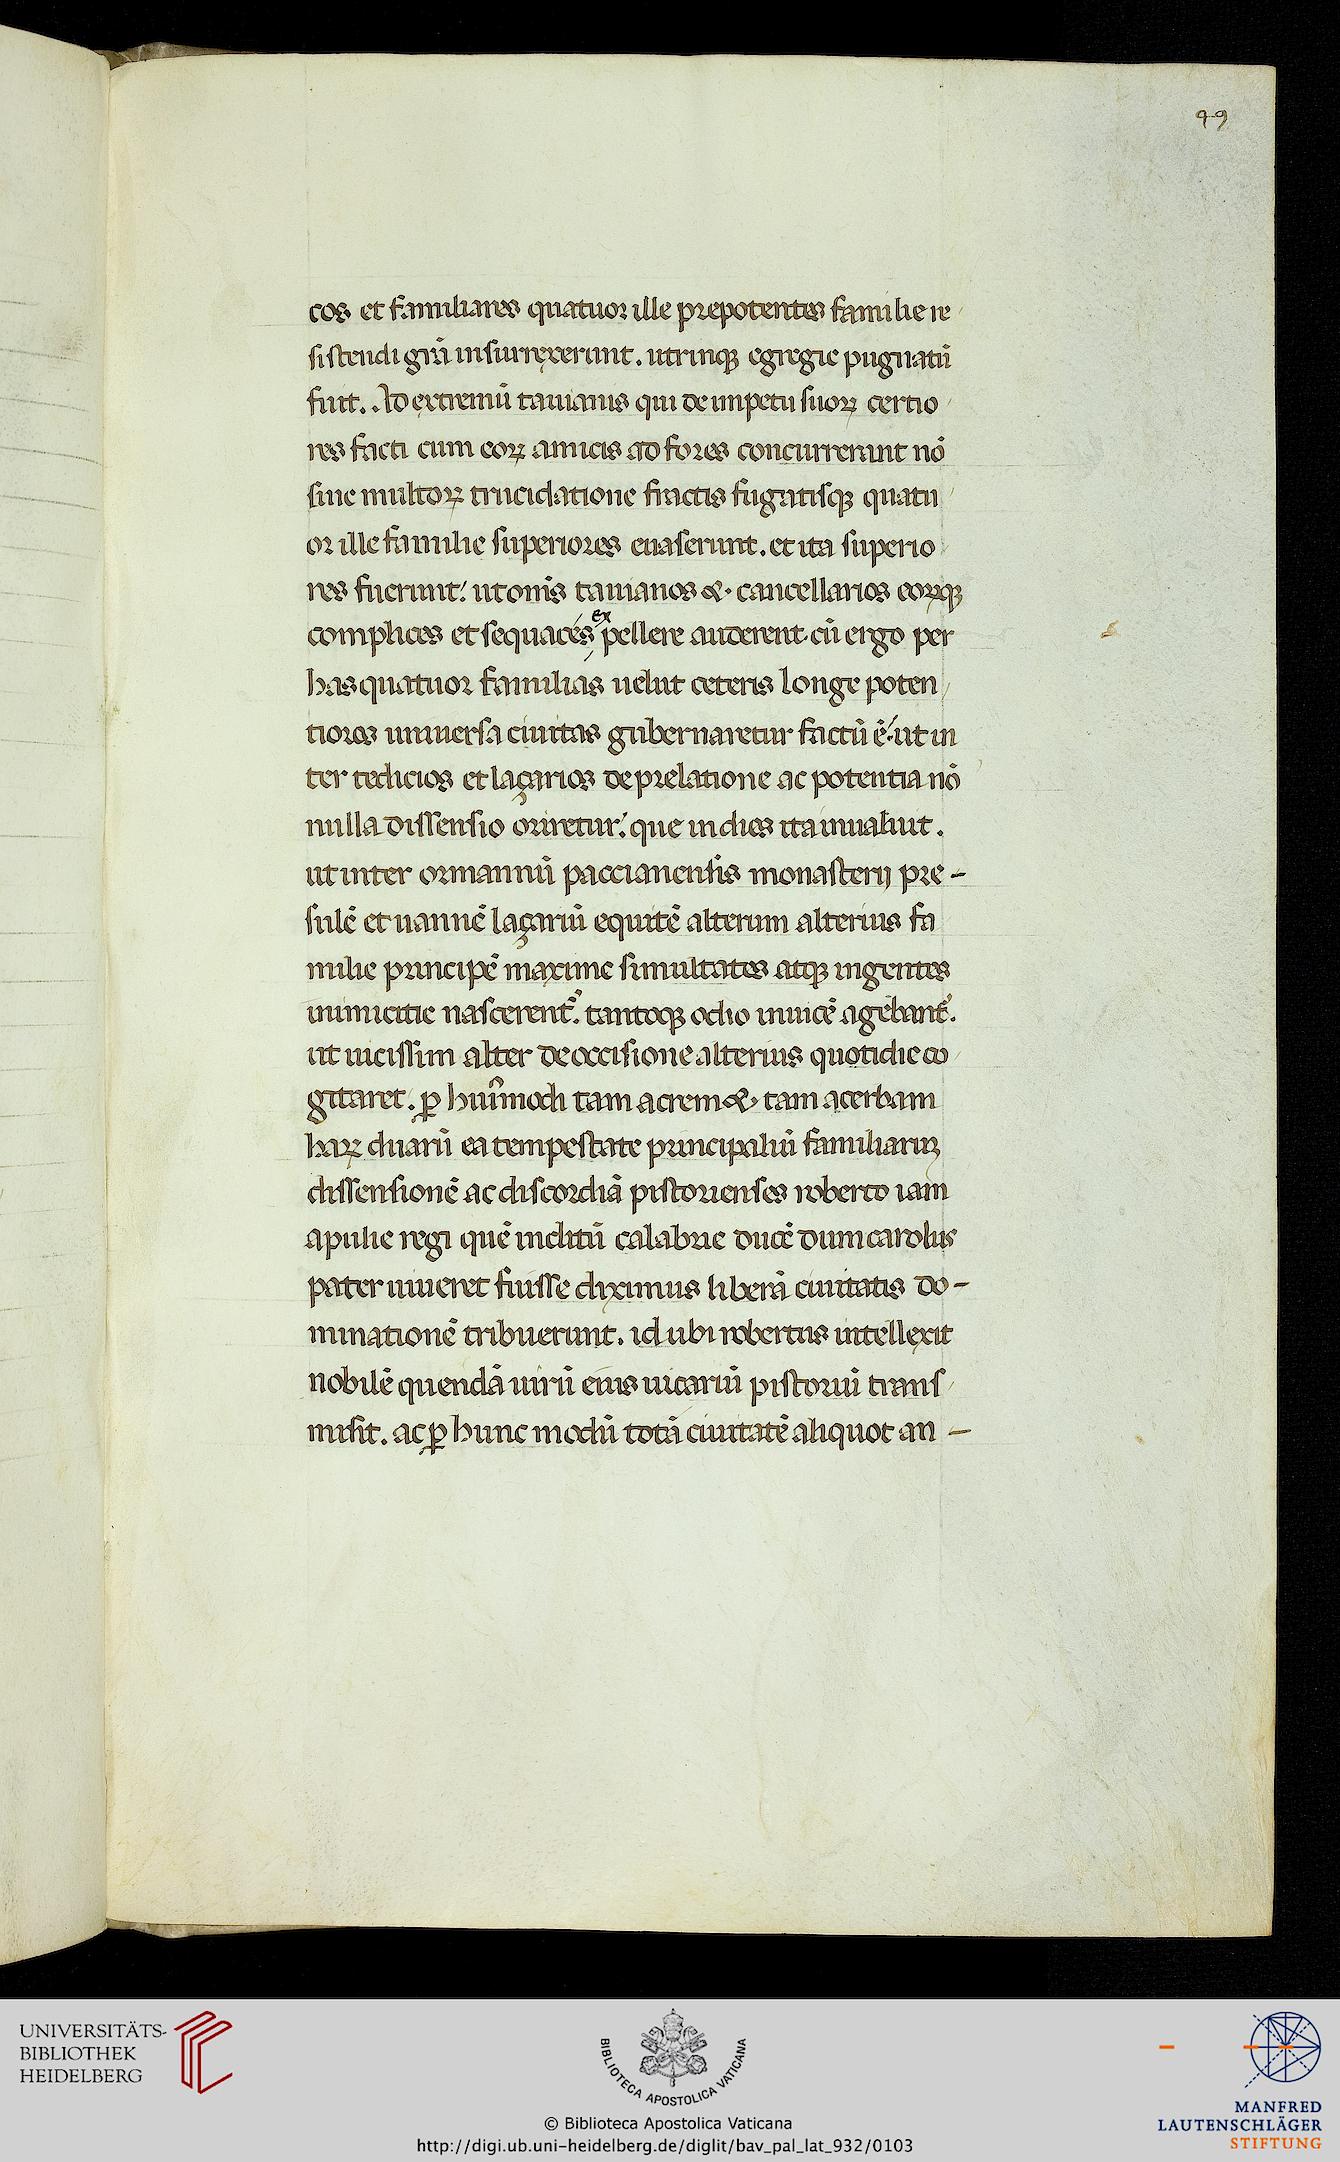 99
cos et familiares quatuor ille prepotentes familie re
sistendi grā insurrexerunt. utrinqꝫ egregie pugnatū
fuit. Ad extremū tauianis qui de impetu suoꝝ certio
res facti cum eoꝝ amicis ad fores concurrerant nō
sine multoꝝ trucidatione fractis fugatisqꝫ quatu
or ille familie superiores euaserunt. et ita superio
res fuerunt: ut omīs tauianos &. cancellarios eoꝝqꝫ
complices et sequaces expellere auderent. cū ergo per
has quatuor familias uelut ceteris longe poten
tiores uniuersa ciuitas gubernaretur factū ē: ut in
ter tedicios et laçarios de prelatione ac potentia nō
nulla dissensio oriretur: que in dies ita inualuit.
ut inter ormannū paccianensis monasterij pre-
sulē et uannē laçariū equitē alterum alterius fa
milie principē maxime simultates atqꝫ ingentes
inimicitie nascerent̄. tantoqꝫ odio inuicē agebant̄.
ut uicissim alter de occisione alterius quotidie co
gitaret. ꝑ huiūmodi tam acrem &. tam acerbam
haꝝ duarū ea tempestate principaliū familiaruꝫ
dissensionē ac discordiā pistorienses roberto iam
apulie regi quē inclitū calabrie ducē dum carolus
pater uiueret fuisse diximus liberā ciuitatis do-
minationē tribuerunt. id ubi robertus intellexit
nobilē quendā uirū eius uicariū pistoriū trans
misit. ac ꝑ hunc modū totā ciuitatē aliquot an-
UNIVERSITÄTS-
BIBLIOTHEK
HEIDELBERG
BIBLIOTECA APOSTOLICA VATICANA
© Biblioteca Apostolica Vaticana
http://digi.ub.uni-heidelberg.de/diglit/bav_pal_lat_932/0103
MANFRED
LAUTENSCHLÄGER
STIFTUNG